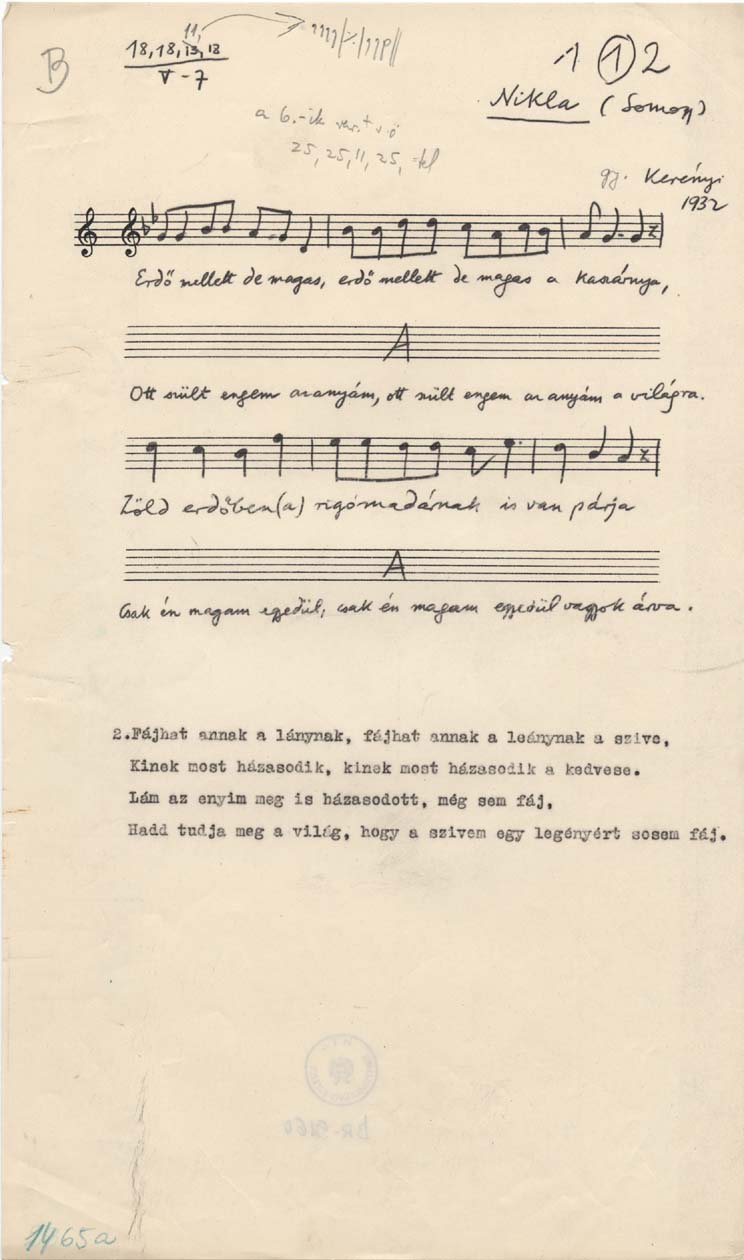 B
11,
18, 18, 13, 13
V - 7
1 1 2
Nikla (Somogy)
a 6.-ik
25, 25, 11, 25,
gy. Kerényi
1932
Erdő mellett de magas, erdő mellett de magas a kaszárnya,
A
Ott szült engem az anyám, ott szült engem az anyám a világra.
Zöld erdőben(a) rigómadárnak is van párja
A
Csak én magam egyedül, csak én magam egyedül vagyok árva.
2.Fájhat annak a lánynak, fájhat annak a leánynak a szive,
Kinek most házasodik, kinek most házasodik a kedvese.
Lám az enyim meg is házasodott, még sem fáj,
Hadd tudja meg a világ, hogy a szivem egy legényért sosem fáj.
1465a